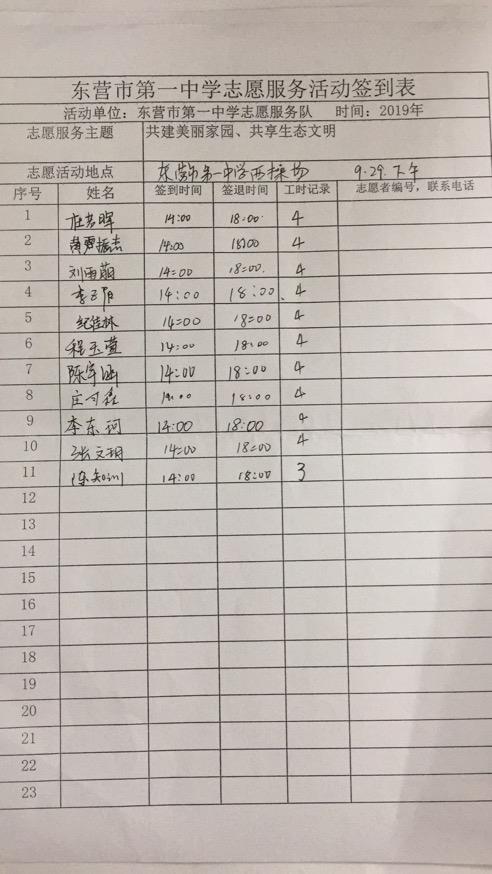 东营市第一中学志愿服务活动签到表
活动单位：东营市第一中学志愿服务队 时间：2019年
志愿服务主题 共建美丽家园、共享生态文明
志愿活动地点 东营市第一中学西操场 9.29.下午
序号 姓名 签到时间 签退时间 工时记录 志愿者编号，联系电话
1 14:00 18:00 4
2 14:00 18:00 4
3 刘雨萌 14:00 18:00 4
4 14:00 18:00 4
5 纪佳林 14:00 18:00 4
6 程玉萱 14:00 18:00 4
7 陈宇涵 14:00 18:00 4
8 14:00 18:00 4
9 李东珂 14:00 18:00 4
10 张文玥 14:00 18:00 4
11 陈知训 14:00 18:00 3
12
13
14
15
16
17
18
19
20
21
22
23